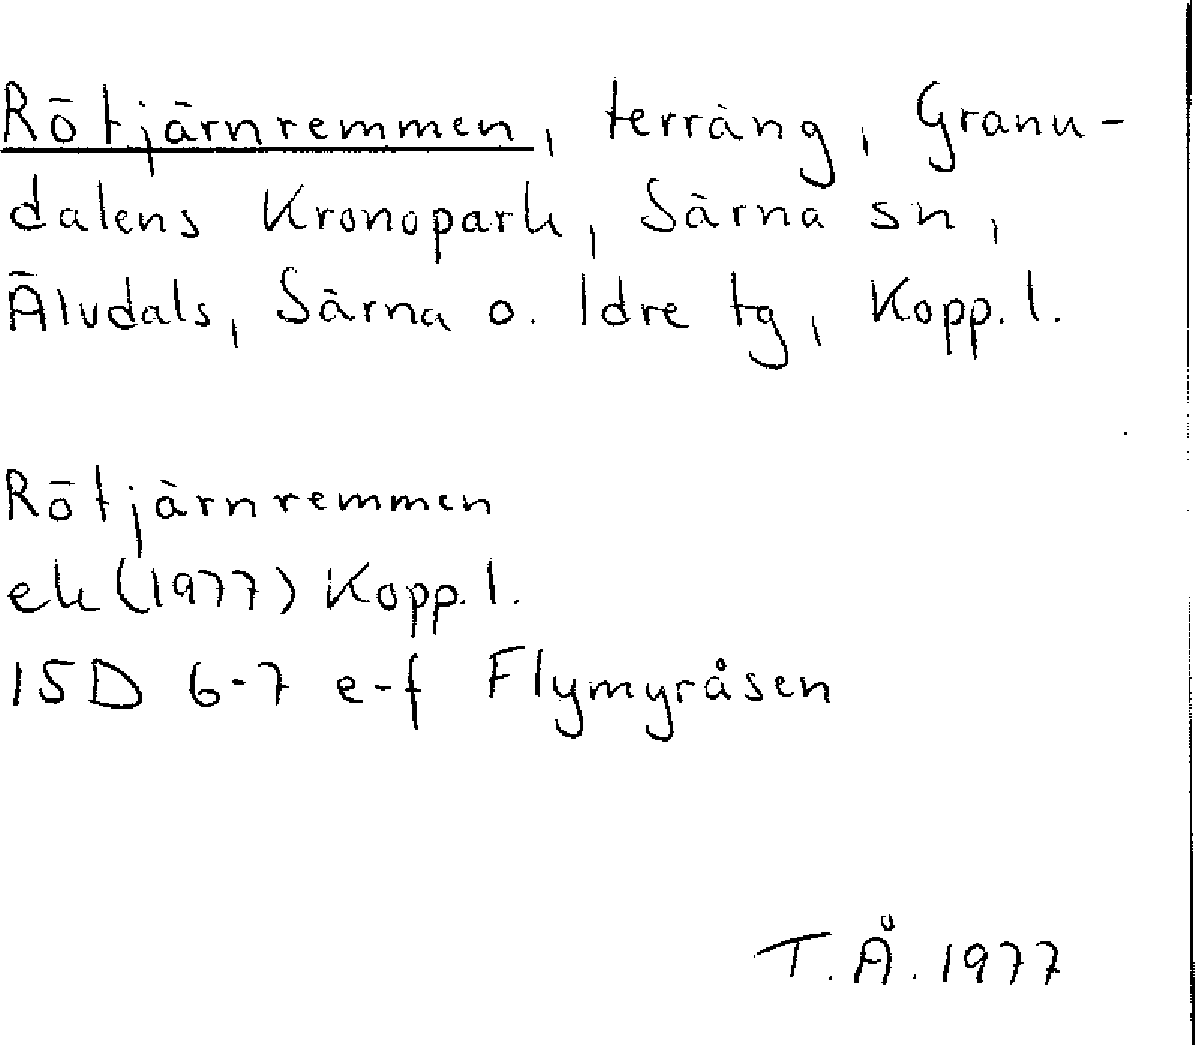 Rötjärnremmen, terräng, Granu-
dalens Kronopark, Särna sn,
Älvdals, Särna o. Idre tg, Kopp. l.
Rötjärnremmen
ek (1977) Kopp. l.
15D 6-7 e-f Flymyråsen
T.Å. 1977